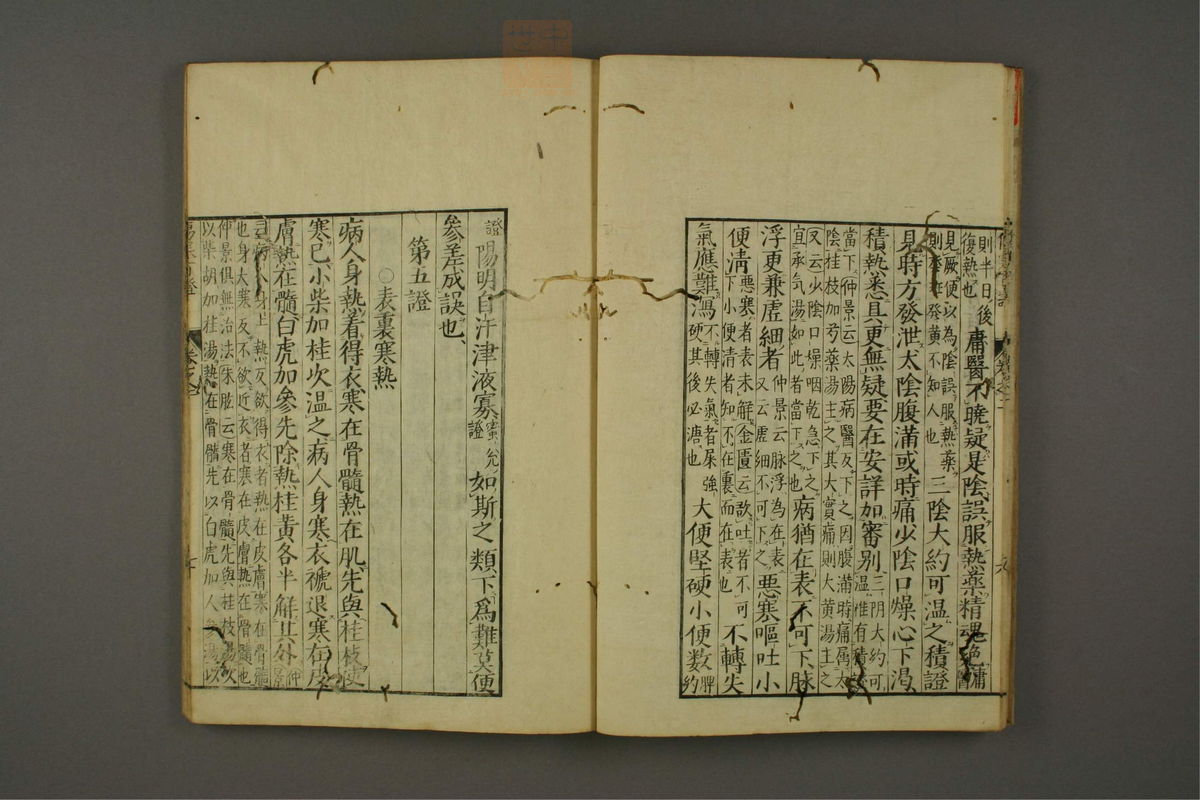 則半日後
復熱也 庸醫不曉疑是陰誤服熱藥精魂
見厥便以為陰誤服熱藥
則發斑發黃不知人也 三陰大約可温之積證
見時方發泄太陰腹滿或時痛少陰口燥心下渇
積熱悉具更無疑要在安詳加審別 三阴大約可
温惟有積
當下仲景云太陽病醫反下之因腹滿時痛属太
陰桂枝加芍藥湯主之其大實痛則大黄湯主之
又云少陰口燥咽乾急下之
宜承氣湯如此者當下之也 病猶在表不可下脉
浮更兼虚細者 仲景云脉浮為在表
又云虚細不可下之 惡塞嘔吐小
便清 惡寒者表未解金匱云欬吐者不可
下小便清者知不在裏而在表也 不轉失
氣應難瀉 不轉失氣者屎強
硬其後必溏也 大便堅硬小便数 脾
約
證 陽明自汗津液寡 蜜
證 如斯之類下爲難莫便
參差成誤也
第五證
○表裏寒熱
病人身熱着得衣寒在骨髓熱在肌先與桂枝使
寒已小柴加桂次温之病人身寒衣褫退寒在皮
膚熱在髓白虎加參先除熱桂黃各半解其外 仲
景
身上熱反欲得衣者熱在皮膚寒在骨髓
也身大寒反不欲近衣者寒在皮膚熱在骨髓也
仲景俱無治法朱肱云寒在骨髓先與桂枝湯次
以柴胡加桂湯熱在骨髓先以白虎加人參湯次